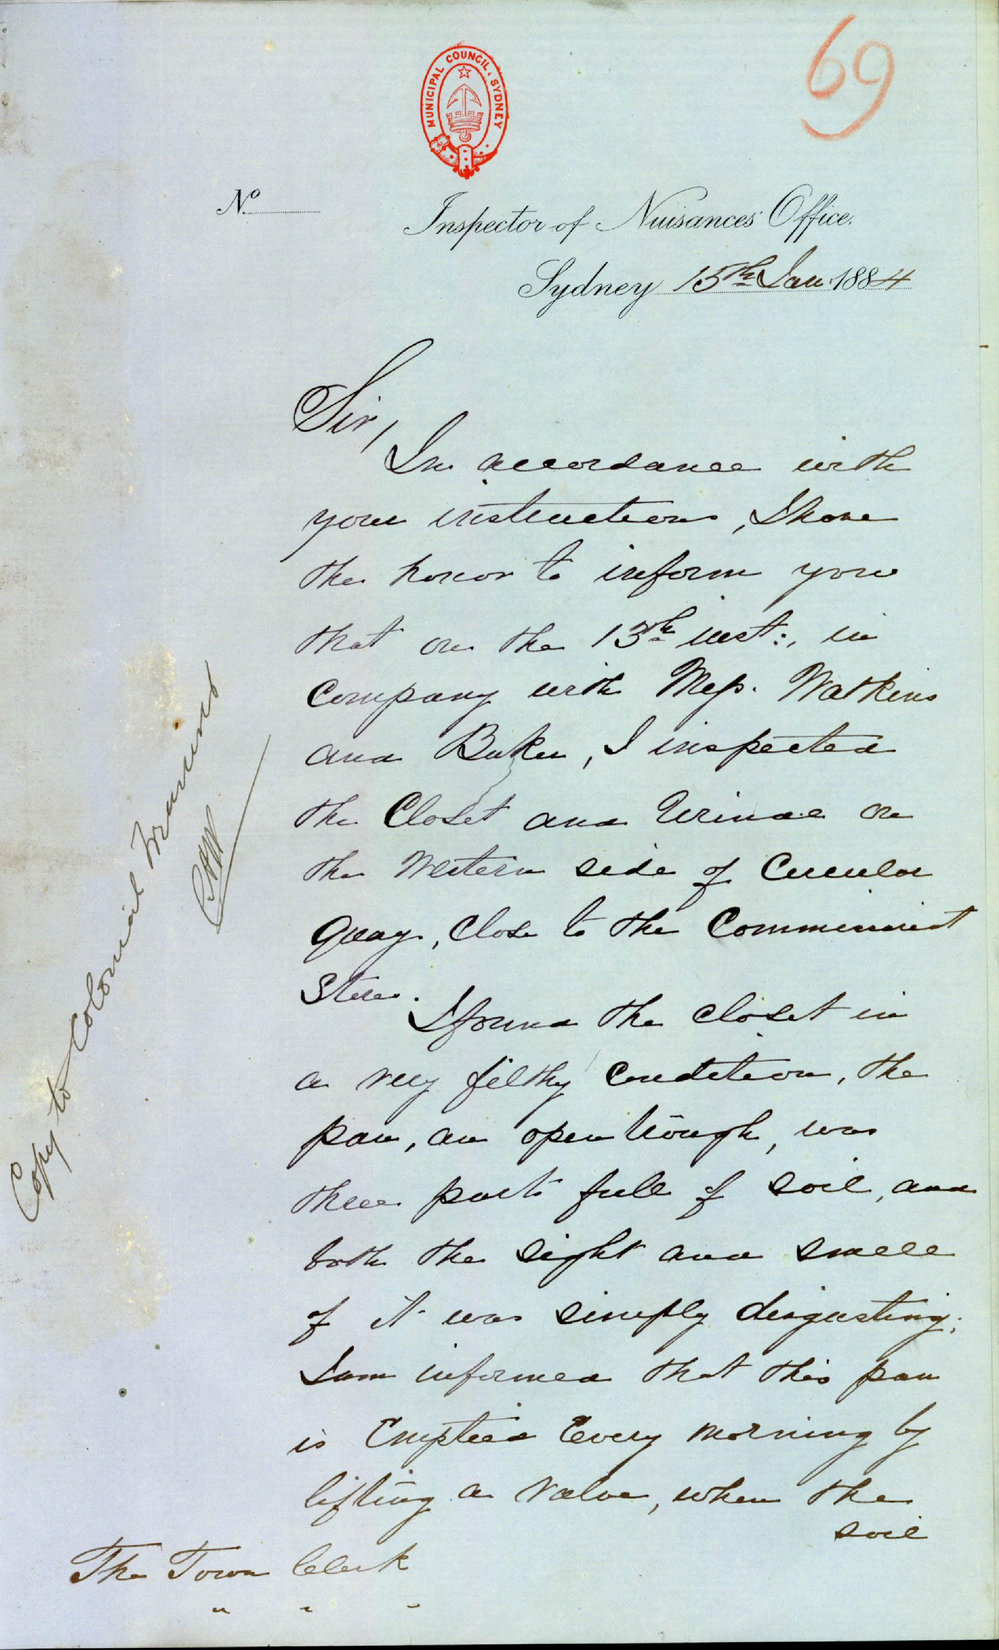 69
MUNICIPAL COUNCIL. SYDNEY
No
Inspector of Nuisances Office.
Sydney 15th Jan. 1884
Sir,
In accordance with
your instructions, I have
the honor to inform you
that on the 13th inst:, in
Company with Mess. Watkins
and Baker, I inspected
the Closet and Urinal on
the Western side of Circular
Quay, Close to the Commissariat
Store.
I found the closet in
a very filthy Condition, the
pan, an open trough, was
three parts full of soil, and
both the sight and smell
of it was simply disgusting;
I am informed that this pan
is Emptied Every morning by
lifting a valve, when the
soil
The Town Clerk
" " "
Copy to Colonial